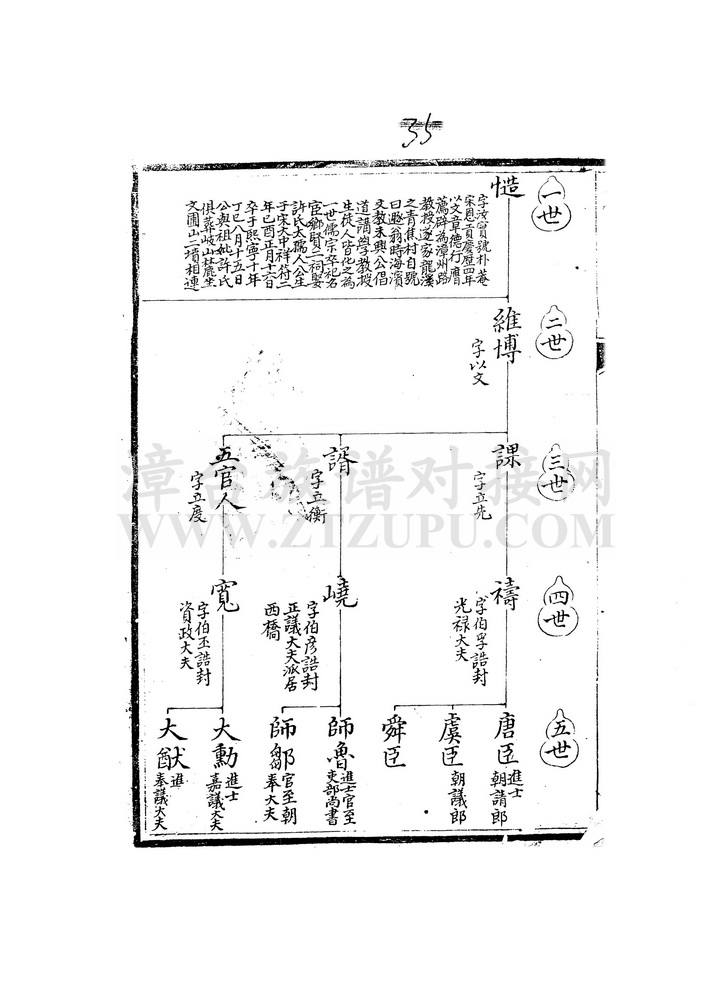 35
一世
愷
字汝賓號朴菴
宋恩貢慶歷四年
以文章德行膺
薦辟為漳州路
教授遂家龍溪
之青焦村自號
曰遯翁時海濱
文教未興公倡
道講學教授
生徒人皆化之為
一世儒宗卒祀名
宦鄉賢二祠娶
許氏太孺人公生
于宋大中祥符二
年己酉正月十六日
卒于熙寧十年
丁巳八月十五日
公與祖妣許氏
俱葬岐山林鹿坐
文圃山二墳相連
二世
維博
字以文
三世
課
字立先
諝
字立衡
五官人
字立度
四世
禱
字伯孚誥封
光祿大夫
嶢
字伯彥誥封
正議大夫派居
西橋
寬
字伯丕誥封
資政大夫
五世
唐臣
進士
朝請郎
虞臣
朝議郎
舜臣
師魯
進士官至
吏部尚書
師鄒
官至朝
奉大夫
大勳
進士
嘉議大夫
大猷
進
奉議大夫
漳台族谱对接网
WWW.ZTZUPU.COM